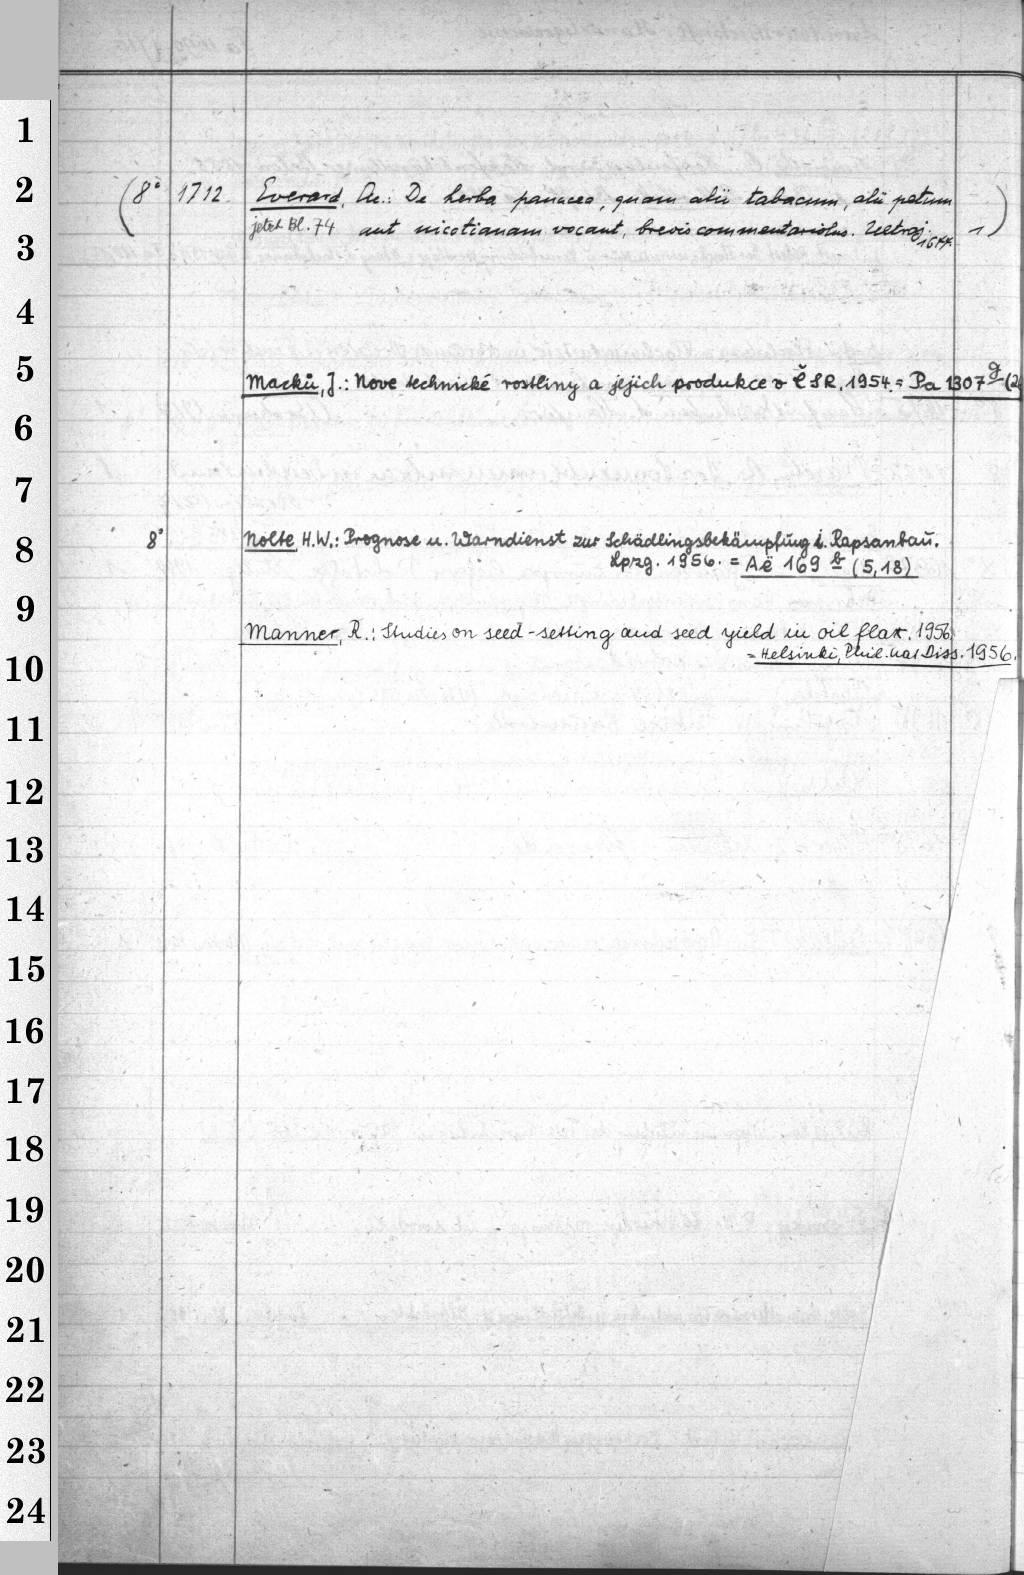 1
2
(8° 1712. Everard, Ae.: De herba panacea, quam alii tabacum, alii petum
jetzt Bl. 74 aut nicotianam vocant, brevis commentariolus. Ultraj. 1644. 1)
3
4
5
Macků, J.: Nove technické rostliny a jejich produkce v ČSR, 1954. = Pa 1307 g (2
6
7
8
8° Nolte, H.W.: Prognose u. Warndienst zur Schädlingsbekämpfung i. Rapsanbau.
Lpzg. 1956. = Aë 169 b (5,18)
9
Manner, R.: Studies on seed-setting and seed yield in oil flax. 1956
= Helsinki, Phil. nat Diss. 1956.
10
11
12
13
14
15
16
17
18
19
20
21
22
23
24